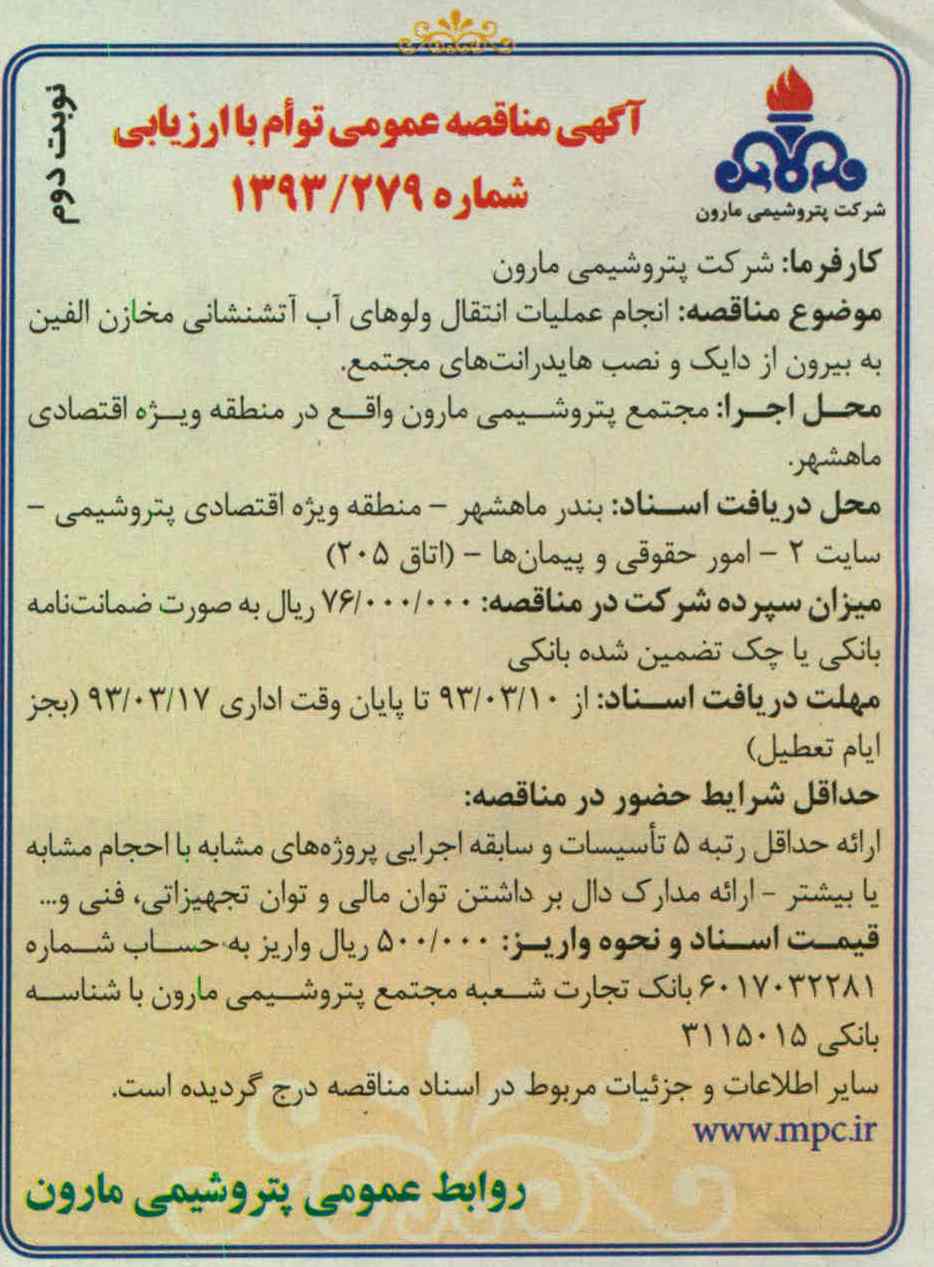 نوبت دوم
آگهی مناقصه عمومی توأم با ارزیابی
شماره ۱۳۹۳/۲۷۹
شرکت پتروشیمی مارون
کارفرما: شرکت پتروشیمی مارون
موضوع مناقصه: انجام عملیات انتقال ولوهای آب آتشنشانی مخازن الفین
به بیرون از دایک و نصب هایدرانت‌های مجتمع.
محل اجرا: مجتمع پتروشیمی مارون واقع در منطقه ویژه اقتصادی
ماهشهر.
محل دریافت اسناد: بندر ماهشهر – منطقه ویژه اقتصادی پتروشیمی –
سایت ۲ – امور حقوقی و پیمان‌ها – (اتاق ۲۰۵)
میزان سپرده شرکت در مناقصه: ۷۶/۰۰۰/۰۰۰ ریال به صورت ضمانت‌نامه
بانکی یا چک تضمین شده بانکی
مهلت دریافت اسناد: از ۹۳/۰۳/۱۰ تا پایان وقت اداری ۹۳/۰۳/۱۷ (بجز
ایام تعطیل)
حداقل شرایط حضور در مناقصه:
ارائه حداقل رتبه ۵ تأسیسات و سابقه اجرایی پروژه‌های مشابه با احجام مشابه
یا بیشتر – ارائه مدارک دال بر داشتن توان مالی و توان تجهیزاتی، فنی و...
قیمت اسناد و نحوه واریز: ۵۰۰/۰۰۰ ریال واریز به حساب شماره
۶۰۱۷۰۳۲۲۸۱ بانک تجارت شعبه مجتمع پتروشیمی مارون با شناسه
بانکی ۳۱۱۵۰۱۵
سایر اطلاعات و جزئیات مربوط در اسناد مناقصه درج گردیده است.
www.mpc.ir
روابط عمومی پتروشیمی مارون